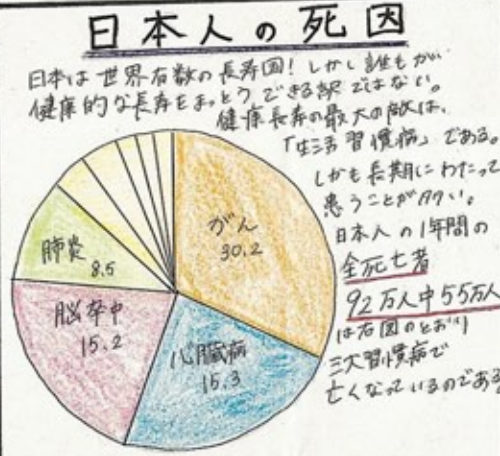 日本人の死因
日本は世界有数の長寿国!しかし誰もが
健康的な長寿をまっとうできる訳ではない。
健康長寿の最大の敵は、
「生活習慣病」である。
しかも長期にわたって
患うことが多い。
日本人の1年間の
全死亡者
92万人中55万人
は右図のとおり
三大習慣病で
亡くなっているのである
がん
30.2
心臓病
15.3
脳卒中
15.2
肺炎
8.5